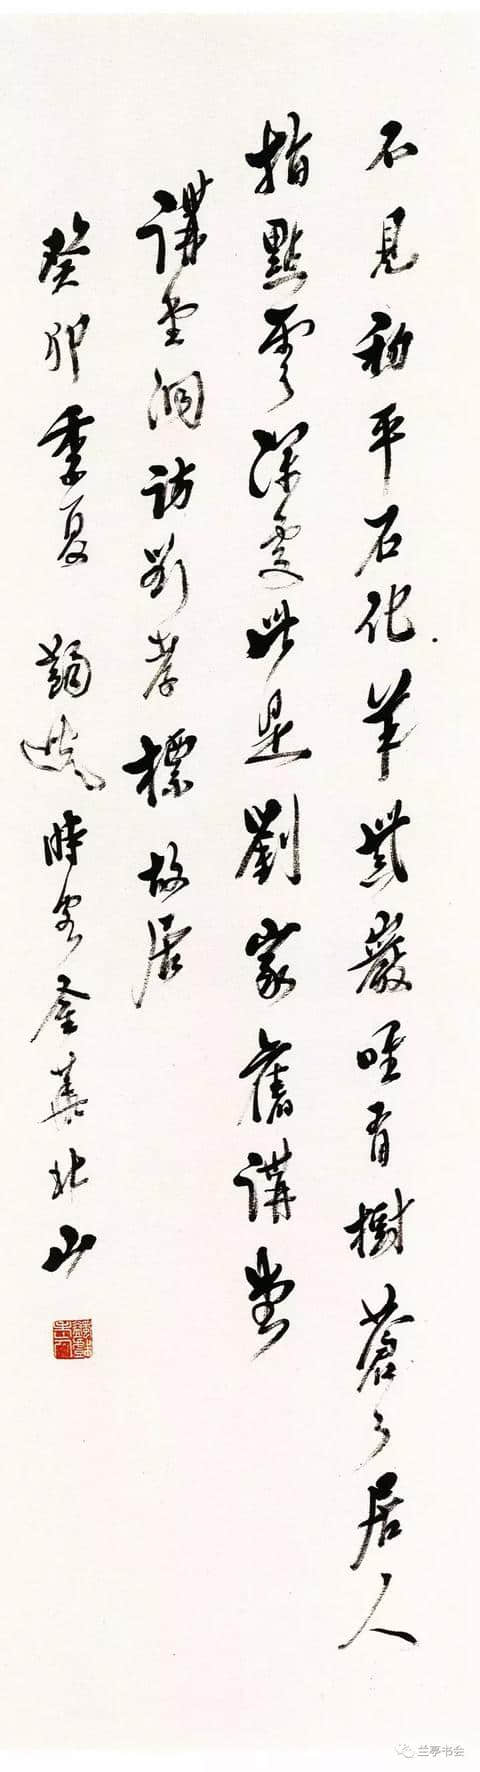 不見初平石化羊紫巖唯有樹蒼〻居人
指點雲深處此是劉家舊講堂
講堂洞訪劉孝標故居
癸卯季夏 時客金華北山
兰亭书会